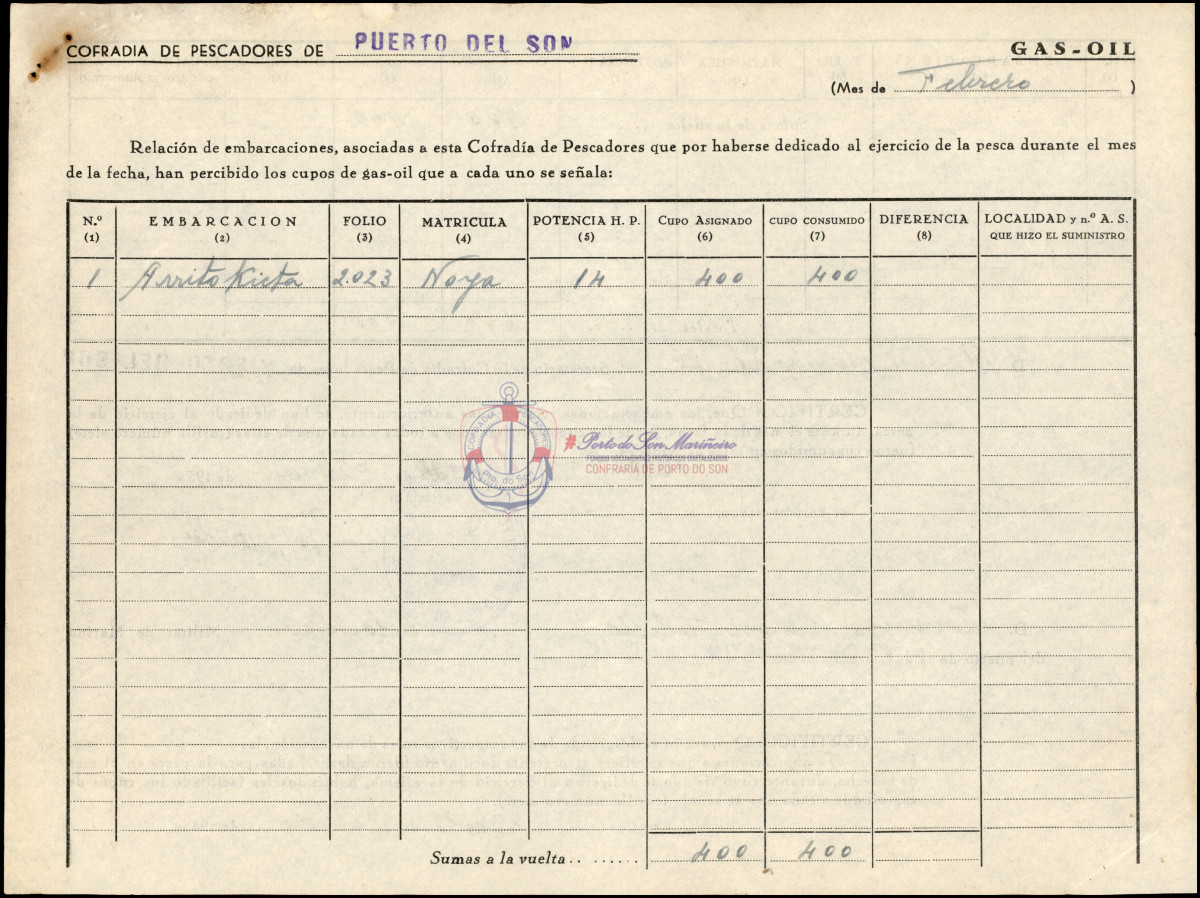 COFRADIA DE PESCADORES DE PUERTO DEL SON
GAS-OIL
(Mes de Febrero)
Relación de embarcaciones, asociadas a esta Cofradía de Pescadores que por haberse dedicado al ejercicio de la pesca durante el mes
de la fecha, han percibido los cupos de gas-oil que a cada uno se señala:
N.º EMBARCACION FOLIO MATRICULA POTENCIA H. P. CUPO ASIGNADO CUPO CONSUMIDO DIFERENCIA LOCALIDAD y n.º A. S.
(1) (2) (3) (4) (5) (6) (7) (8) QUE HIZO EL SUMINISTRO
1 2.023 Noya 14 400 400
COFRADIA PESCADORES
Pto. do Son
#Porto do Son Mariñeiro
FONDOS DOCUMENTAIS HISTÓRICOS DIXITALIZADOS
CONFRARÍA DE PORTO DO SON
Sumas a la vuelta.. ...... 400 400